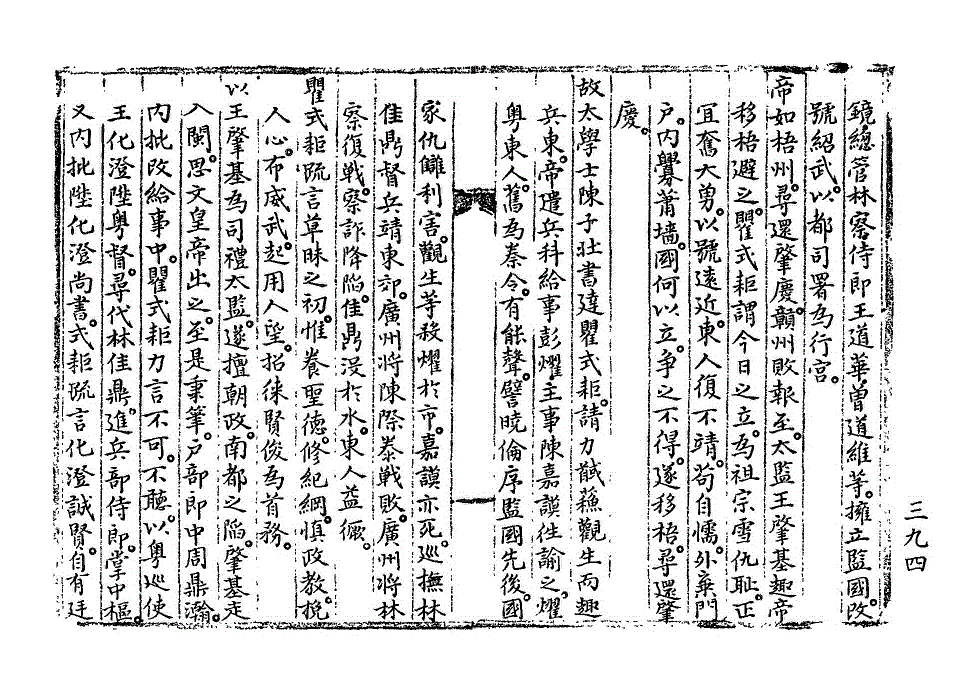 鏡總管林察侍郎王道華曽道維等。擁立監國。改
號紹武。以都司署為行宫。
帝如梧州。尋還肇慶。贛州敗報至。太監王肇基趣帝
移梧避之。瞿式耜謂今日之立。為祖宗雪仇恥。正
宜奮大勇。以號遠近。東人復不靖。苟自懦。外棄門
户。内釁蕭墻。國何以立。爭之不得。遂移梧。尋還肇
慶。
故太學士陳子壮書達瞿式耜。請力馘蘓觀生而趣
兵東。帝遣兵科給事彭燿主事陳嘉謨徃諭之。燿
粤東人。舊為秦令。有能聲。譬曉倫序監國先後。國
家仇讎利害。觀生等殺燿於市。嘉謨亦死。巡撫林
佳鼎督兵靖東郊。廣州將陳際泰戰敗。廣州將林
察復戰。察詐降陷。佳鼎没於水。東人益横。
瞿式耜疏言草昧之初。惟養聖德。修紀綱。慎政教。挽
人心。布威武。起用人望。招徠賢俊為首務。
以王肇基為司禮太監。遂擅朝政。南都之陷。肇基走
入閩。思文皇帝出之。至是秉筆。户部郎中周鼎瀚。
内批改給事中。瞿式耜力言不可。不聽。以粤巡使
王化澄陞粤督。尋代林佳鼎。進兵部侍郎。掌中樞。
又内批陞化澄尚書。式耜疏言化澄誠賢。自有廷
三九四